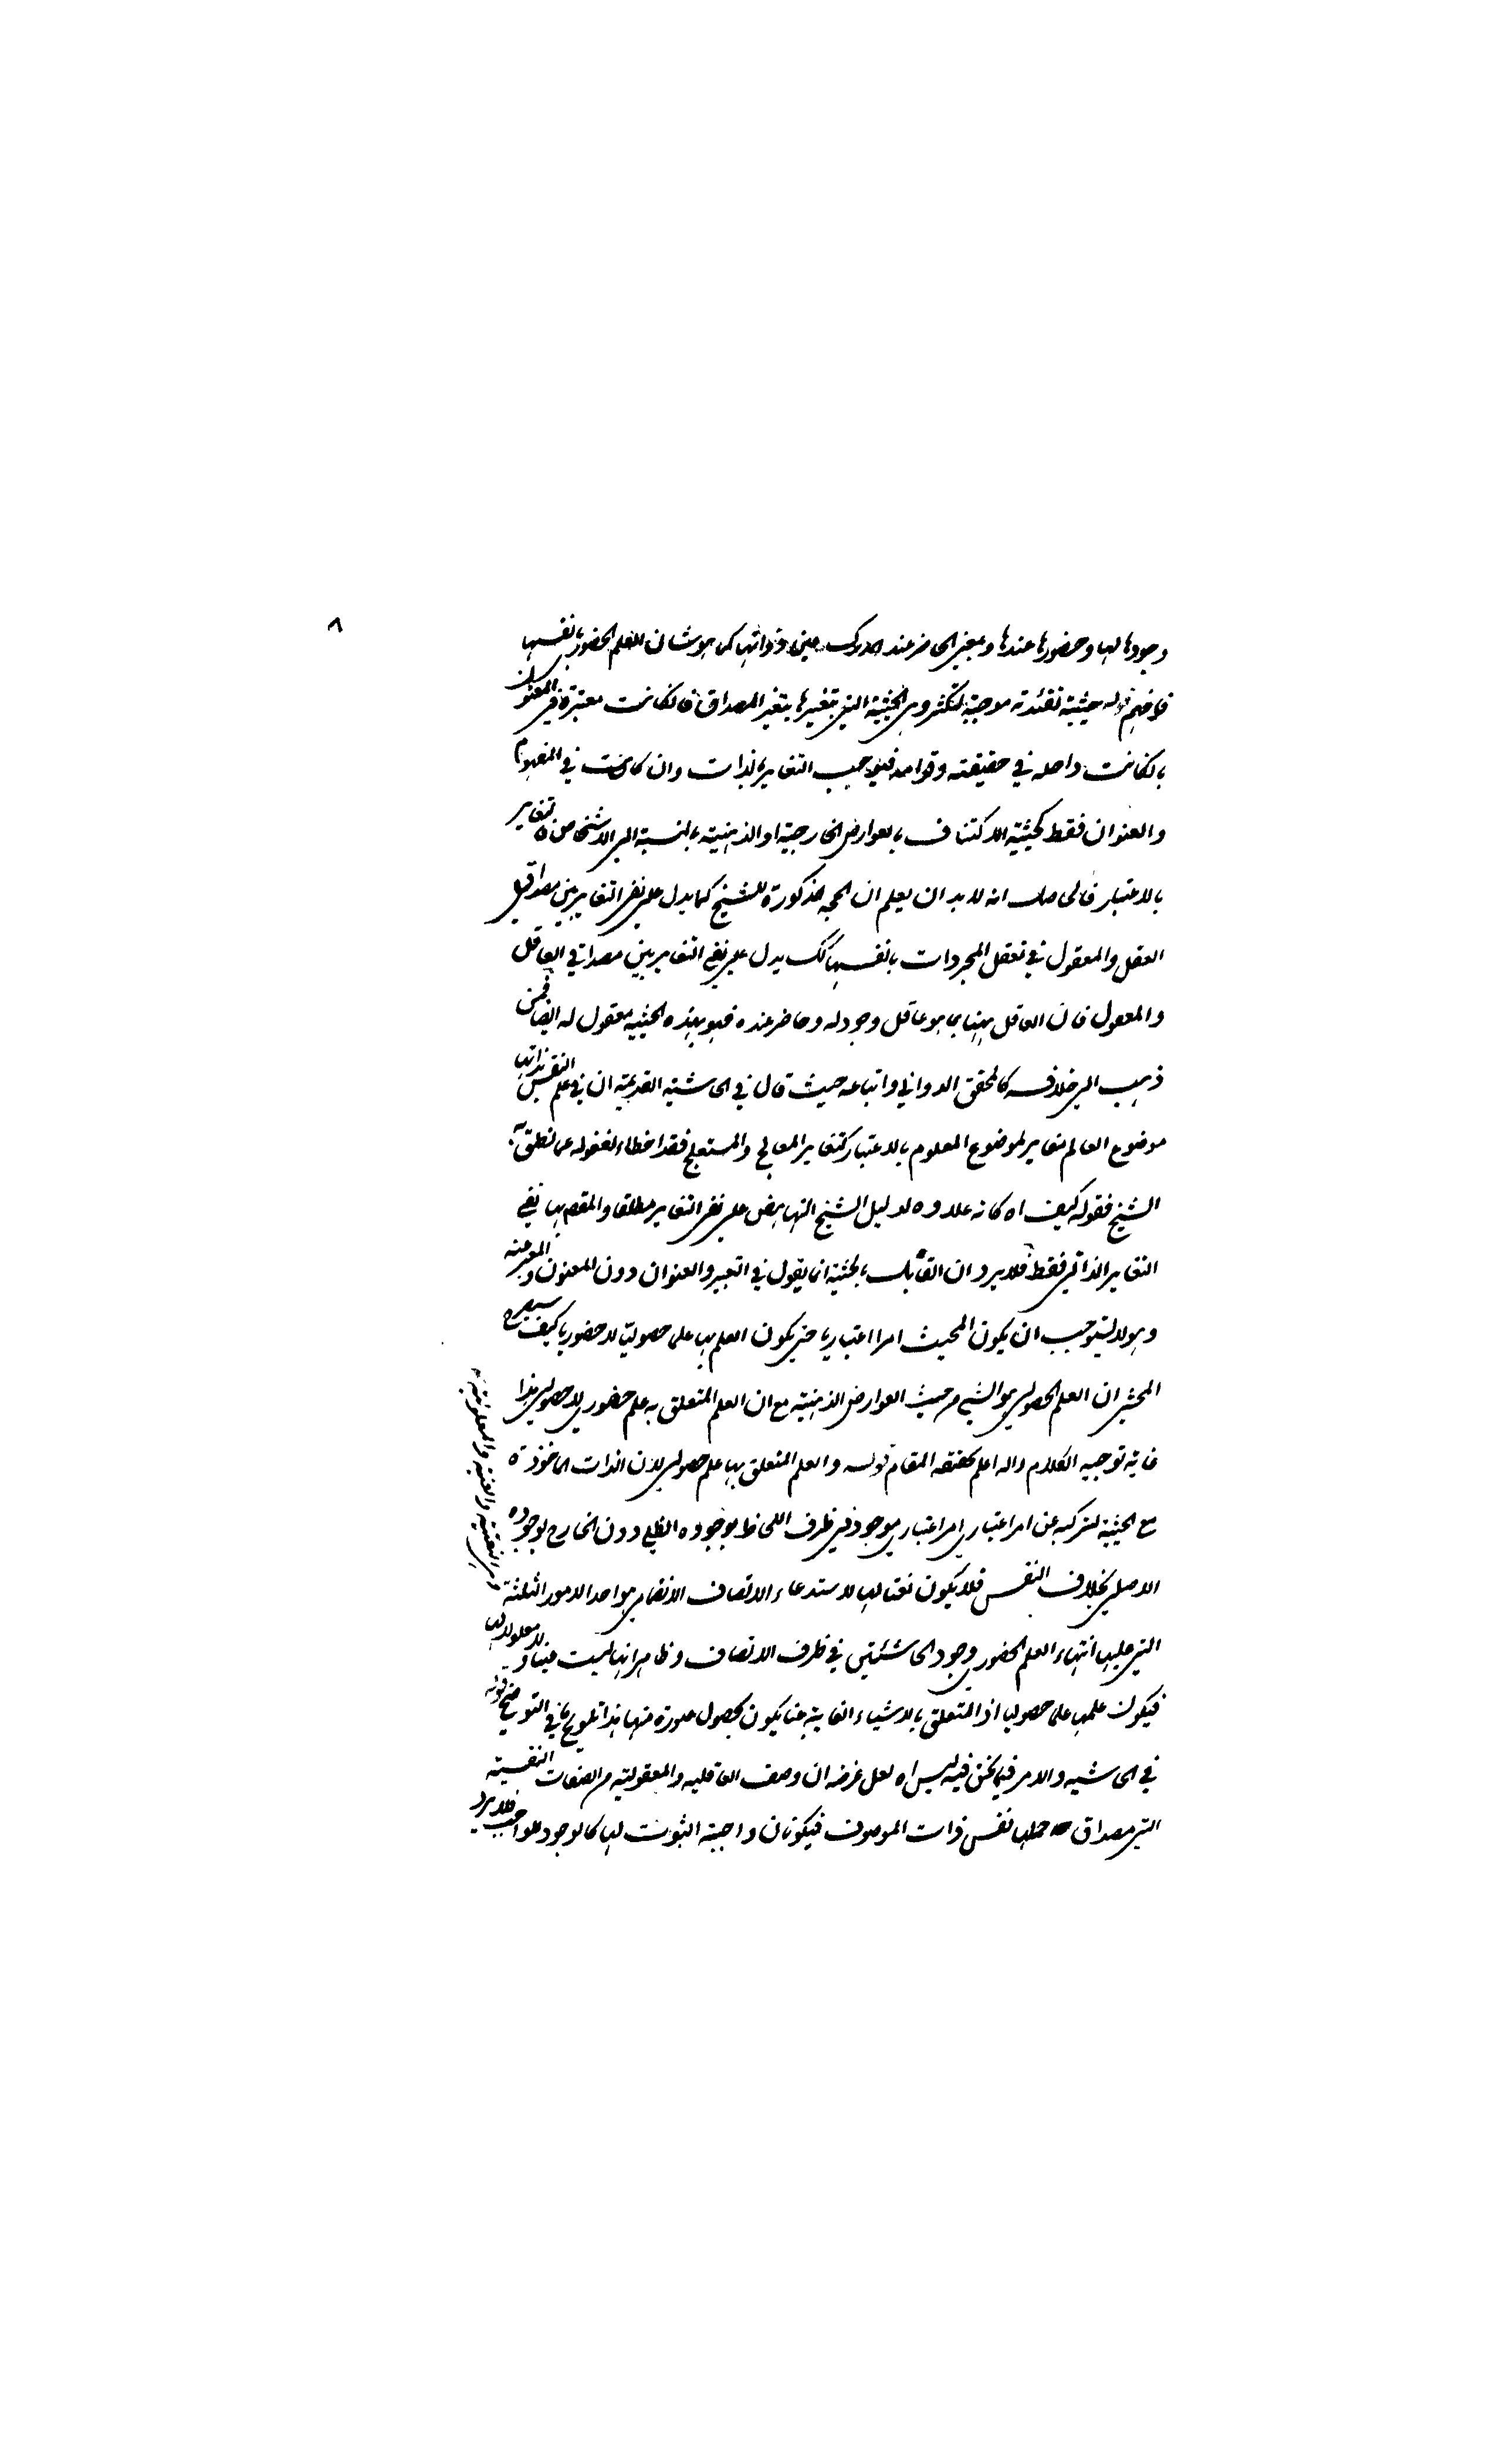 ٨
وجودها لها وحضورها عندها وبمعنى الحاضر عند المدرك عين ذواتها كما هو شان العلم الحضوري بانفسها
فافهم قوله حيثية تقئدته موجبة للتكثر وهي الحيثية التي بتغيرها يتغير المصداق فانكانت معتبرة في المعنون
بانكانت داخله في حقيقته وقوامه فيوجب التغاير بالذات وان كانت في المفهوم
والعنوان فقط كحيثية الاكتناف بالعوارض الخارجية او الذهنية بالنسبة الى الاشخاص فالتغاير
بالاعتبار فالحاصل انه لا بد ان يعلم ان الحجة المذكورة للشيخ كما يدل على نفى التغاير بين مصداقي
العقل والمعقول في تعقل المجردات بانفسها كك يدل على نفي التغاير بين مصداقي العاقل
والمعقول فان العاقل ههنا بما هو عاقل وجود له وحاضر عنده فهو بهذه الحيثية معقول له ايضا فمن
ذهب الى خلافه كالمحقق الدواني واتباعه حيث قال في الحاشية القديمة ان في علم النفس بذاتها
موضوع العالم مغاير لموضوع المعلوم بالاعتبار كتغاير المعالج والمستعلج فقد اخطاء لغفوله عما نطق به
الشيخ فقوله كيف اه كانه علاوه لدليل الشيخ الناهض على نفى التغاير مطلقا والمقصود بها نفي
التغاير الذاتي فقط فلا يرد ان القائل بالحيثية انما يقول في التعبير والعنوان دون المعنون والمعبر عنه
وهو لا يستوجب ان يكون المحيث امرا اعتباريا حتى يكون العلم بها علما حصوليا لا حضوريا كيف وسيصرح
المحشي ان العلم الحصولي هو الشيء من حيث العوارض الذهنية مع ان العلم المتعلق به علم حضوري لا حصولي هذا
غاية توجيه الكلام والله اعلم بحقيقة المقام قوله والعلم المتعلق بها علم حصولي لان الذات الماخوذة
مع الحيثية لتركبه عن امر اعتباري امر اعتباري موجود في ظرف اللحاظ بوجوده الظلي دون الخارج بوجوده
الاصلي بخلاف النفس فلا يكون نعتا لها لاستدعاء الاتصاف الانضمامي هو احد الامور الثلثة
وهي النعتية والعينية والمعلولية
التي عليها انتهاء العلم الحضوري وجود الحاشيتين في ظرف الاتصاف وظاهر انها ليست عينا ولا معلولا لها
فيكون علمها علما حصوليا اذ المتعلق بالاشياء الغايبة عنا يكون بحصول صورة منها هذا تلويح بما في التوضيح قوله
في الحاشيه والامر فيما نحن فيه ليس اه لعل غرضه ان وصف العاقلية والمعقولية من الصفات النفسية
التي مصداق حملها نفس ذات الموصوف فيكونان واجبة الثبوت لها كالوجود للواجب فلا يرد